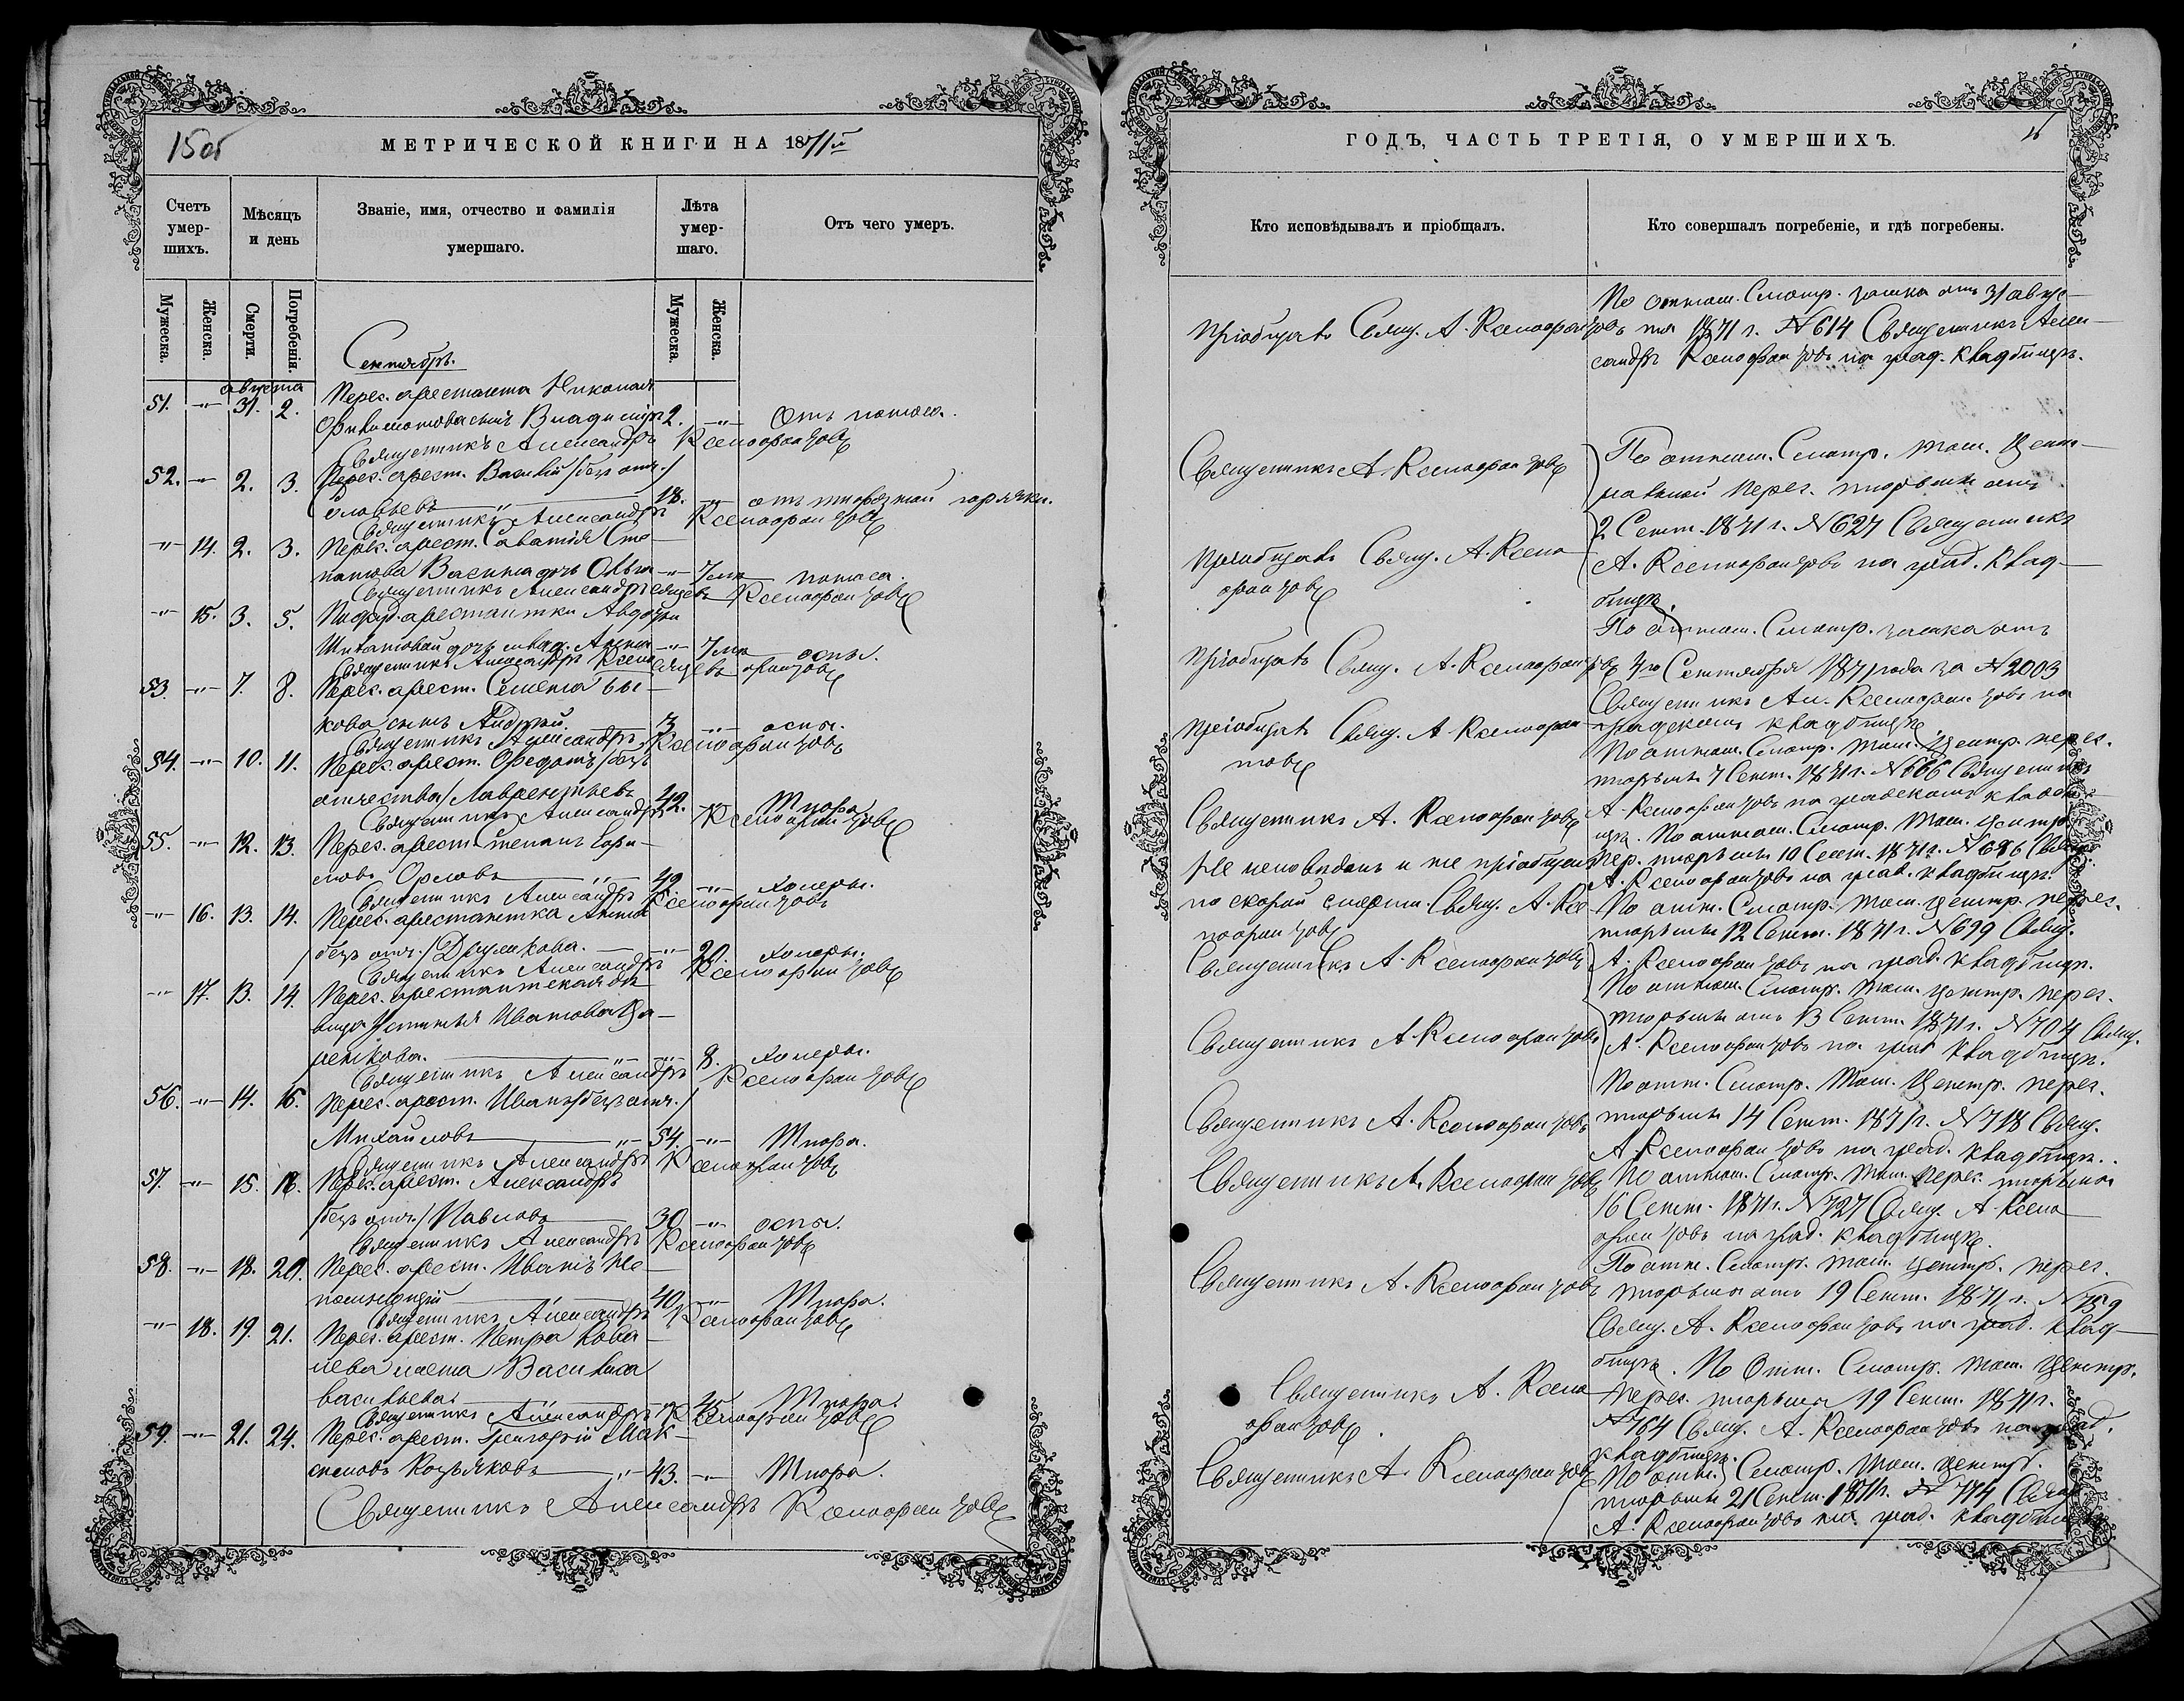 15 об
МЕТРИЧЕСКОЙ КНИГИ НА 1871й
Счетъ умер-шихъ.
Мѣсяцъ и день
Званіе, имя, отчество и фамилія умершаго.
Лѣта умер-шаго.
Отъ чего умеръ.
Мужеска.
Женска.
Смерти.
Погребенія.
Мужеска.
Женска.
Сентябрь.
августа
Перес. арестанта Николая
51. -"- 31. 2. сынъ Владиміръ 2. -"- Отъ поноса.
Священникъ Александръ Ксенофонтовъ
52. -"- 2. 3. Перес. арест. Василій /безъ отч./
Соловьевъ -"- 18. -"- отъ тифозной горячки.
Священникъ Александръ Ксенофонтовъ
-"- 14. 2. 3. Перес. арест. Саватія Сте-
панова дочь Ольга -"- 7 мѣ- поноса.
Священникъ Александръ сяцевъ Ксенофонтовъ
-"- 15. 3. 5. арестантки Авдотьи
дочь Анна -"- 7 мѣ- оспы.
Священникъ Александръ Ксено сяцевъ фонтовъ
53. -"- 7. 8. Перес. арест. Семена Бы-
кова сынъ Андрей. 3 -"- оспы.
Священникъ Александръ Ксенофонтовъ
54. -"- 10. 11. Перес. арест. Федотъ /безъ
отчества/ Лаврентьевъ 42. -"- Тифа.
Священникъ Александръ Ксенофонтовъ
55. -"- 12. 13. Перес. арест. Степанъ Бори-
совъ Орловъ -"- 42. -"- Холеры.
Священникъ Александръ Ксенофонтовъ
-"- 16. 13. 14. Перес. арестантка Анна
/безъ отч./ -"- 20. Холеры.
Священникъ Александръ Ксенофонтовъ
-"- 17. 13. 14. Перес. арестантская дѣ-
вица Устинья Иванова Ца-
ренкова. -"- -"- 8. Холеры.
Священникъ Александръ Ксенофонтовъ
56. -"- 14. 16. Перес. арест. Иванъ /безъ отч./
Михайловъ -"- 54. -"- Тифа.
Священникъ Александръ Ксенофонтовъ
57. -"- 15. 18. Перес. арест. Александръ
/безъ отч./ Павловъ 30 -"- оспы.
Священникъ Александръ Ксенофонтовъ
58. -"- 18. 20. Перес. арест. Иванъ Не-
помнящій -"- 40. -"- Тифа.
Священникъ Александръ Ксенофонтовъ
-"- 18. 19. 21. Перес. арест. Петра Кова-
лева жена Василиса
Васильева. -"- -"- 45. Тифа.
Священникъ Александръ Ксенофонтовъ
59. -"- 21. 24. Перес. арест. Григорій Мак-
симовъ Козьяковъ -"- 43. -"- Тифа.
Священникъ Александръ Ксенофонтовъ
ГОДЪ, ЧАСТЬ ТРЕТІЯ, О УМЕРШИХЪ.
Кто исповѣдывалъ и пріобщалъ.
Кто совершалъ погребеніе, и гдѣ погребены.
Пріобщалъ Свящ. А. Ксенофонтовъ
Священникъ А. Ксенофонтовъ
Пріобщалъ Свящ. А. Ксено-
фонтовъ
Пріобщалъ Свящ. А. Ксенофонтовъ
Пріобщалъ Свящ. А. Ксенофон-
товъ
Священникъ А. Ксенофонтовъ
Не исповѣданъ и не пріобщенъ
по скорой смерти. Свящ. А. Ксе-
нофонтовъ
Священникъ А. Ксенофонтовъ
Священникъ А. Ксенофонтовъ
Священникъ А. Ксенофонтовъ
Священникъ А. Ксенофонтовъ
Священникъ А. Ксенофонтовъ
Священникъ А. Ксено-
фонтовъ.
Священникъ А. Ксенофонтовъ
По отнош. Смотр. замка отъ 31 авгус-
та 1871 г. № 614 Священникъ Алек-
сандръ Ксенофонтовъ на град. кладбищѣ.
По отнош. Смотр. Том. Цент-
ральной Перес. тюрьмы отъ
2 Сент. 1871 г. № 627 Священникъ
А. Ксенофонтовъ на град. клад-
бищѣ.
По отнош. Смотр. замка отъ
4го Сентября 1871 года за № 2003
Священникъ Ал. Ксенофонтовъ на
градскомъ кладбищѣ
По отнош. Смотр. Том. Центр. перес.
тюрьмы 7 Сент. 1871 г. № 666 Священникъ
А. Ксенофонтовъ на градскомъ кладби-
щѣ. По отнош. Смотр. Том. Центр.
Пер. тюрьмы 10 Сент. 1871 г. № 686 Свящ.
А. Ксенофонтовъ на град. кладбищѣ.
По отн. Смотр. Том. Центр. перес.
тюрьмы 12 Сент. 1871 г. № 699 Свящ.
А. Ксенофонтовъ на град. кладбищѣ.
По отнош. Смотр. Том. Центр. перес.
тюрьмы отъ 13 Сент. 1871 г. № 704 Свящ.
А. Ксенофонтовъ на град кладбищѣ.
По отн. Смотр. Том. Центр. перес.
тюрьмы 14 Сент. 1871 г. № 718 Свящ.
А. Ксенофонтовъ на град. кладбищѣ.
По отнош. Смотр. Том. Перес. тюрьмы
16 Сент. 1871 г. № 727 Свящ. А. Ксено-
фонтовъ на град. кладбищѣ.
По отн. Смотр. Том. Центр. перес.
тюрьмы отъ 19 Сент. 1871 г. № 759
Свящ. А. Ксенофонтовъ на град. клад-
бищѣ. По Отн. Смотр. Том. Центр.
перес. тюрьмы 19 Сент. 1871 г.
№ 764 Свящ. А. Ксенофонтовъ на град.
кладбищѣ.
По отн. Смотр. Том. Центр.
тюрьмы 21 Сент. 1871 г. № 774 Свящ.
А. Ксенофонтовъ на град. кладбищѣ